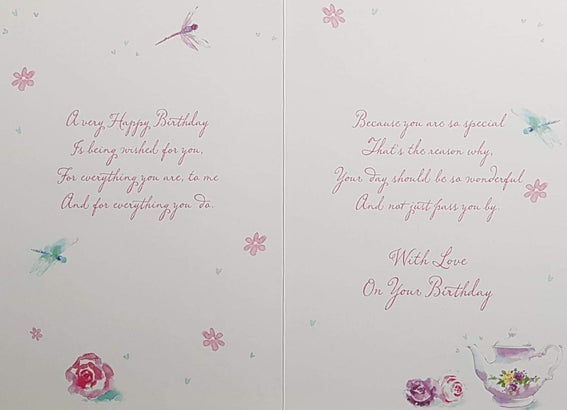 A very Happy Birthday
Is being wished for you,
For everything you are, to me
And for everything you do.
Because you are so special
That's the reason why,
Your day should be so wonderful
And not just pass you by.
With Love
On Your Birthday